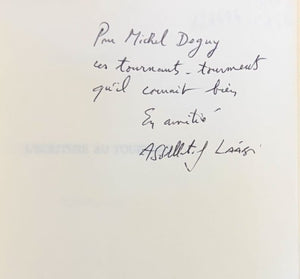 Pour Michel Deguy
ces tournants-tourments
qu'il connait bien
En amitié
Abdellatif Laâbi